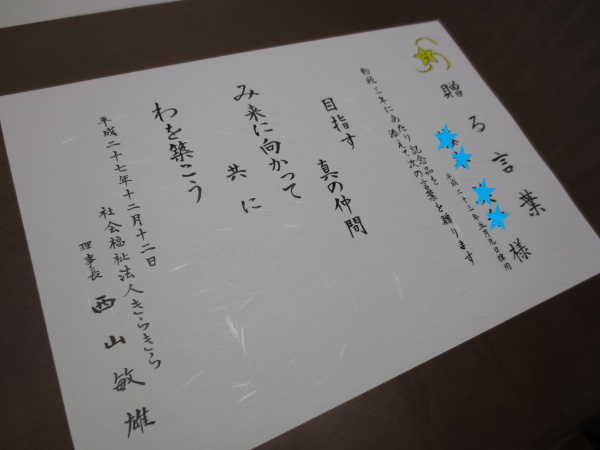 贈る言葉
様
平成二十三年五月九日採用
勤続三年にあたり記念品を
添えて次の言葉を贈ります
目指す 真の仲間
み来に向かって
共に
わを築こう
平成二十七年十二月十二日
社会福祉法人きらきら
理事長 西山敏雄